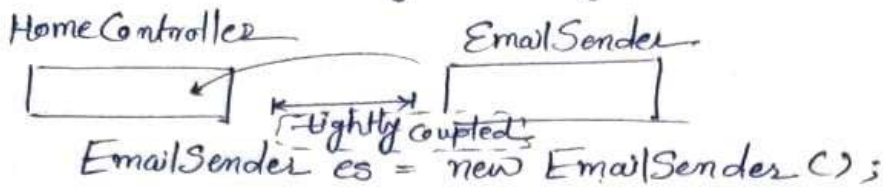 HomeController EmailSender
Tightly coupled
EmailSender es = new EmailSender();